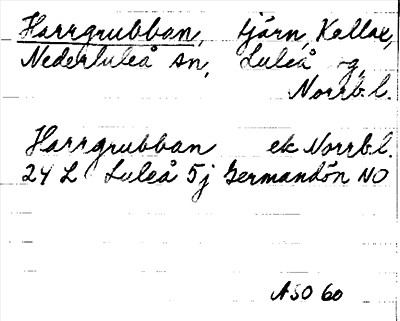 Harrgrubban, tjärn, Kallax,
Nederluleå sn, Luleå g,
Norrb. l.
Harrgrubban ek Norrb l.
24 L Luleå 5j Germandön NO
ASO 60